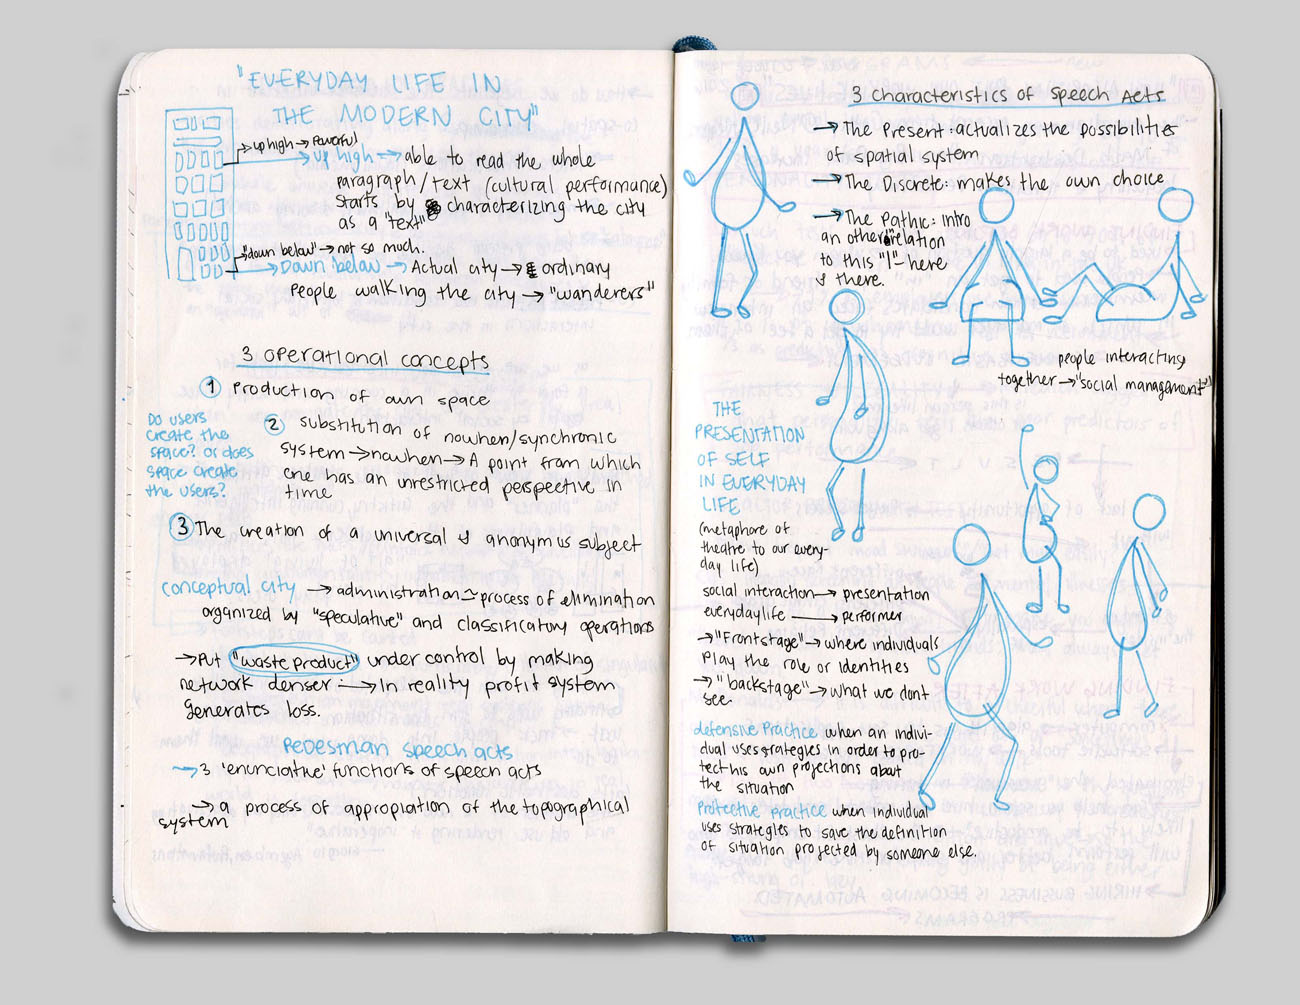 "EVERYDAY LIFE IN
THE MODERN CITY"
up high → Powerful
up high → able to read the whole
paragraph/text (cultural performance)
starts by characterizing the city
as a "text"
"down below" → not so much.
Down below → Actual city → ordinary
People walking the city → "wanderers"
3 operational concepts
1 Production of own space
Do users
create the
space? or does
space create
the users?
2 substitution of nowhen/synchronic
system → nowhen → A point from which
one has an unrestricted perspective in
time
3 The creation of a universal & anonymus subject
conceptual city → administration ~ process of elimination
organized by "speculative" and classificatory operations
→ Put "waste product" under control by making
network denser: → In reality profit system
generates loss.
Pedestrian speech acts
→ 3 'enunciative' functions of speech acts
→ a process of appropiation of the topographical
system
3 characteristics of speech Acts
→ The present: actualizes the possibilities
of spatial system
→ The Discrete: makes the own choice
→ The Pathic: intro
an other relation
to this "I"-here
& there.
people interacting
together → "social management"
THE
PRESENTATION
OF SELF
IN EVERYDAY
LIFE
(metaphore of
theatre to our every-
day life)
social interaction → presentation
everydaylife → performer
→ "Frontstage" → where individuals
play the role or identities
→ "backstage" → what we dont
see.
defensive Practice when an indivi-
dual uses strategies in order to pro-
tect his own projections about
the situation
Protective practice when individual
uses strategies to save the definition
of situation projected by someone else.